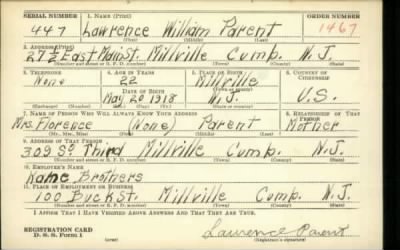 SERIAL NUMBER 1. NAME (Print) ORDER NUMBER
447 Lawrence William Parent 1467
(First) (Middle) (Last)
2. ADDRESS (Print)
27½ East Main St. Millville Cumb. N.J.
(Number and street or R. F. D. number) (Town) (County) (State)
3. TELEPHONE 4. AGE IN YEARS 5. PLACE OF BIRTH 6. COUNTRY OF CITIZENSHIP
None 22 Millville
DATE OF BIRTH (Town or county)
May 20 1918 N.J. U.S.
(Exchange) (Number) (Mo.) (Day) (Yr.) (State or country)
7. NAME OF PERSON WHO WILL ALWAYS KNOW YOUR ADDRESS 8. RELATIONSHIP OF THAT PERSON
Mrs. Florence (None) Parent Mother
(Mr., Mrs., Miss) (First) (Middle) (Last)
9. ADDRESS OF THAT PERSON
309 So Third Millville Cumb. N.J.
(Number and street or R. F. D. number) (Town) (County) (State)
10. EMPLOYER'S NAME
Brothers
11. PLACE OF EMPLOYMENT OR BUSINESS
100 Buck St. Millville Cumb. N.J.
(Number and street or R. F. D. number) (Town) (County) (State)
I AFFIRM THAT I HAVE VERIFIED ABOVE ANSWERS AND THAT THEY ARE TRUE.
REGISTRATION CARD
D. S. S. Form 1 (over) Lawrence Parent
(Registrant's signature)